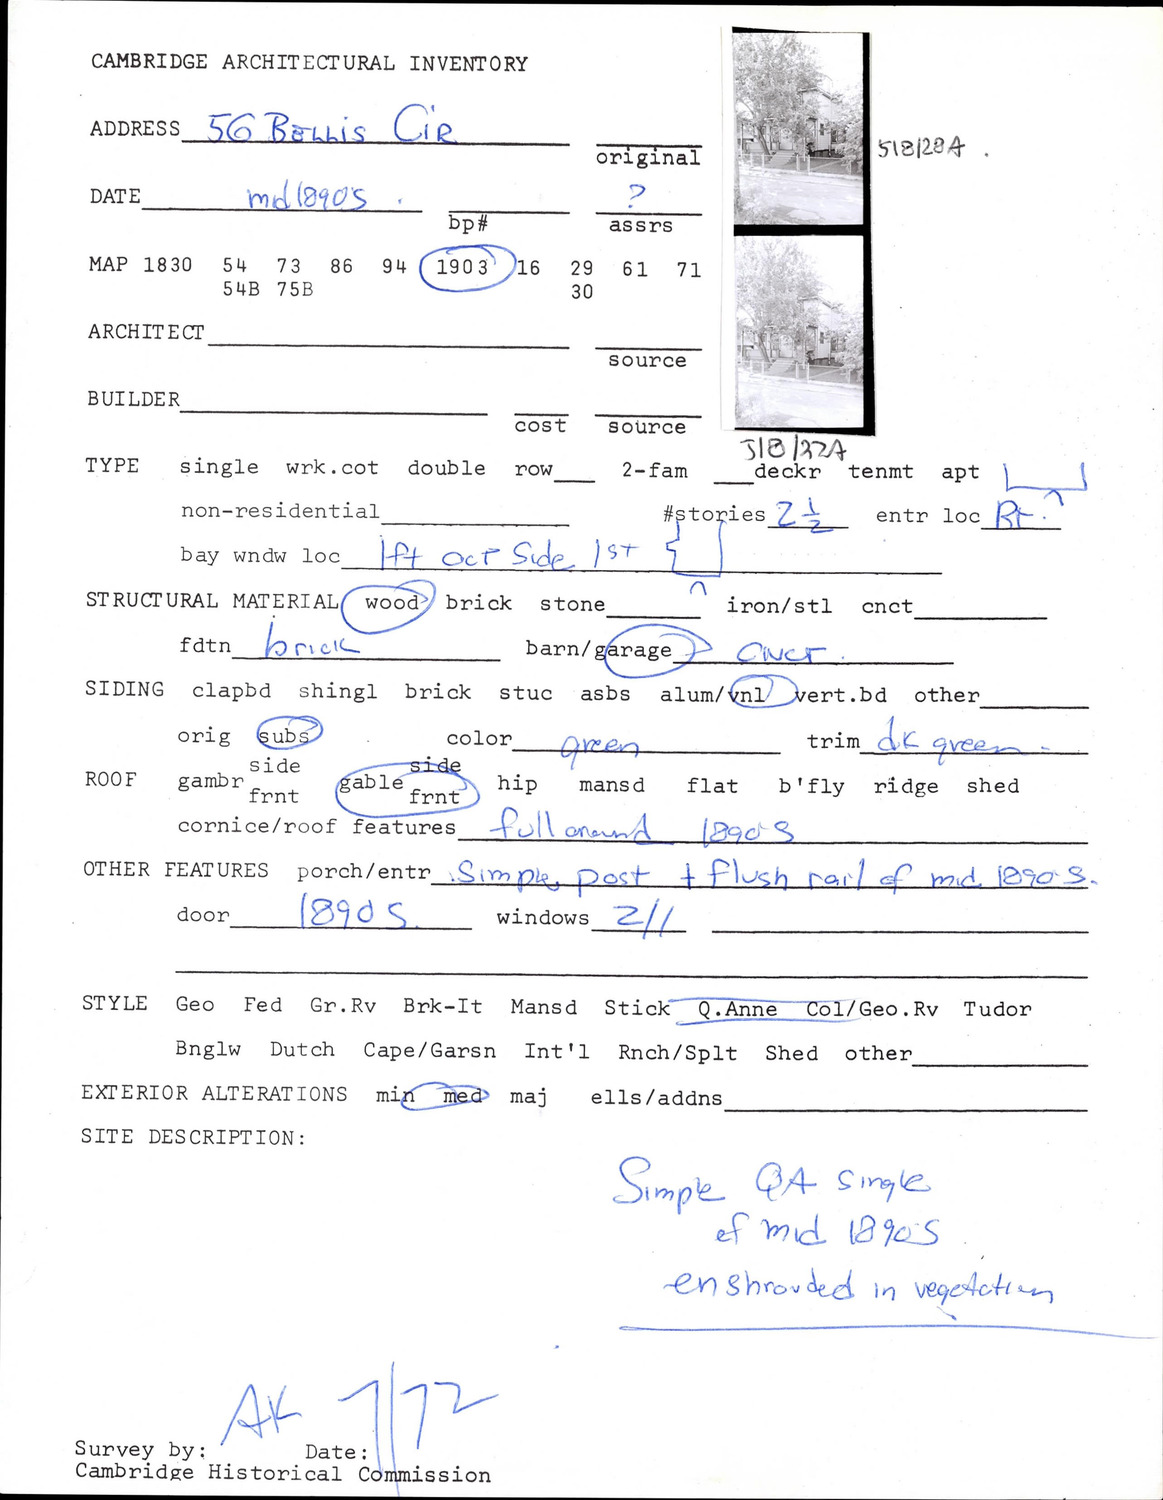 CAMBRIDGE ARCHITECTURAL INVENTORY
ADDRESS 56 BELLIS CIR
original
518/28A .
DATE mid 1890's . ?
bp# assrs
MAP 1830 54 73 86 94 1903 16 29 61 71
54B 75B 30
ARCHITECT
source
BUILDER
cost source
518/27A
TYPE single wrk.cot double row 2-fam deckr tenmt apt
non-residential #stories 2 1/2 entr loc Rt.
bay wndw loc lft oct side 1st
STRUCTURAL MATERIAL wood brick stone iron/stl cnct
fdtn brick barn/garage cnct.
SIDING clapbd shingl brick stuc asbs alum/vnl vert.bd other
orig subs color green trim dk green
ROOF gambr side frnt gable side frnt hip mansd flat b'fly ridge shed
cornice/roof features full around 1890s
OTHER FEATURES porch/entr Simple post + flush rail of mid 1890s.
door 1890s windows 2/1
STYLE Geo Fed Gr.Rv Brk-It Mansd Stick Q.Anne Col/Geo.Rv Tudor
Bnglw Dutch Cape/Garsn Int'l Rnch/Splt Shed other
EXTERIOR ALTERATIONS min med maj ells/addns
SITE DESCRIPTION:
Simple QA single
of mid 1890's
enshrouded in vegetation
AK 7/72
Survey by: Date:
Cambridge Historical Commission